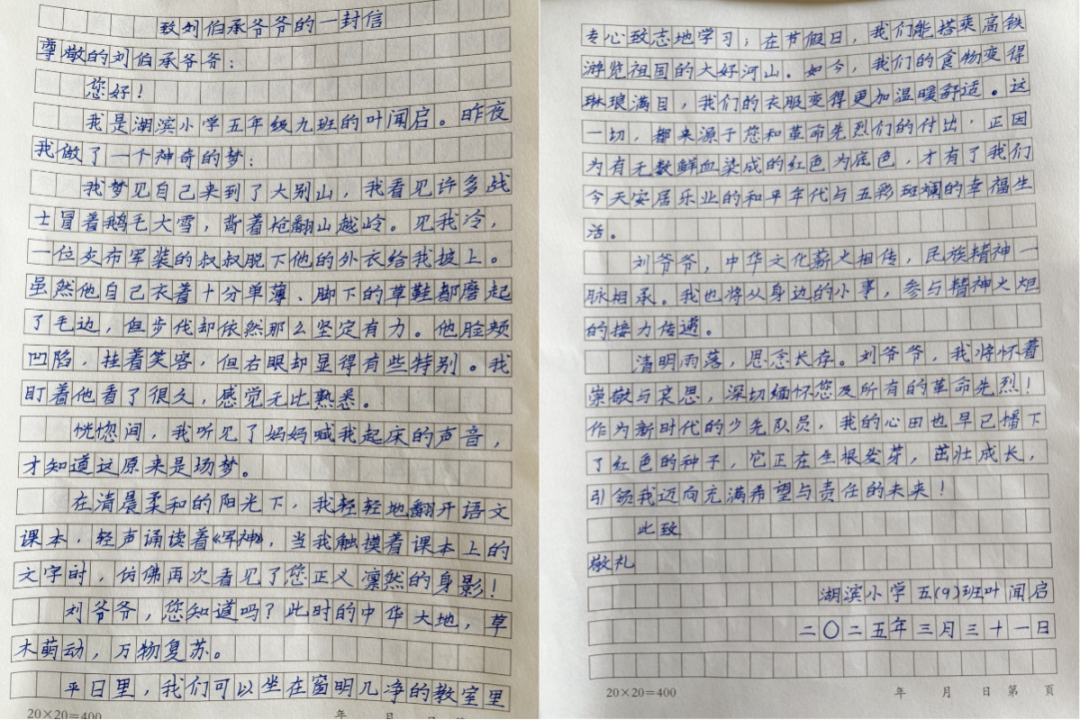 致刘伯承爷爷的一封信
尊敬的刘伯承爷爷：
您好！
我是湖滨小学五年级九班的叶闻启。昨夜
我做了一个神奇的梦：
我梦见自己来到了大别山，我看见许多战
士冒着鹅毛大雪，背着枪翻山越岭。见我冷，
一位灰布军装的叔叔脱下他的外衣给我披上。
虽然他自己衣着十分单薄、脚下的草鞋都磨起
了毛边，但步伐却依然那么坚定有力。他脸颊
凹陷，挂着笑容，但右眼却显得有些特别。我
盯着他看了很久，感觉无比熟悉。
恍惚间，我听见了妈妈喊我起床的声音，
才知道这原来是场梦。
在清晨柔和的阳光下，我轻轻地翻开语文
课本，轻声诵读着《军神》，当我触摸着课本上的
文字时，仿佛再次看见了您正义凛然的身影！
刘爷爷，您知道吗？此时的中华大地，草
木萌动，万物复苏。
平日里，我们可以坐在窗明几净的教室里
20×20=400
年 月 日 第
专心致志地学习；在节假日，我们能搭乘高铁
游览祖国的大好河山。如今，我们的食物变得
琳琅满目，我们的衣服变得更加温暖舒适。这
一切，都来源于您和革命先烈们的付出，正因
为有无数鲜血染成的红色为底色，才有了我们
今天安居乐业的和平年代与五彩斑斓的幸福生
活。
刘爷爷，中华文化薪火相传，民族精神一
脉相承。我也将从身边的小事，参与精神火炬
的接力传递。
清明雨落，思念长存。刘爷爷，我将怀着
崇敬与哀思，深切缅怀您及所有的革命先烈！
作为新时代的少先队员，我的心田也早已播下
了红色的种子，它正在生根发芽，茁壮成长，
引领我迈向充满希望与责任的未来！
此致
敬礼
湖滨小学五(9)班叶闻启
二〇二五年三月三十一日
20×20=400
年 月 日 第 页